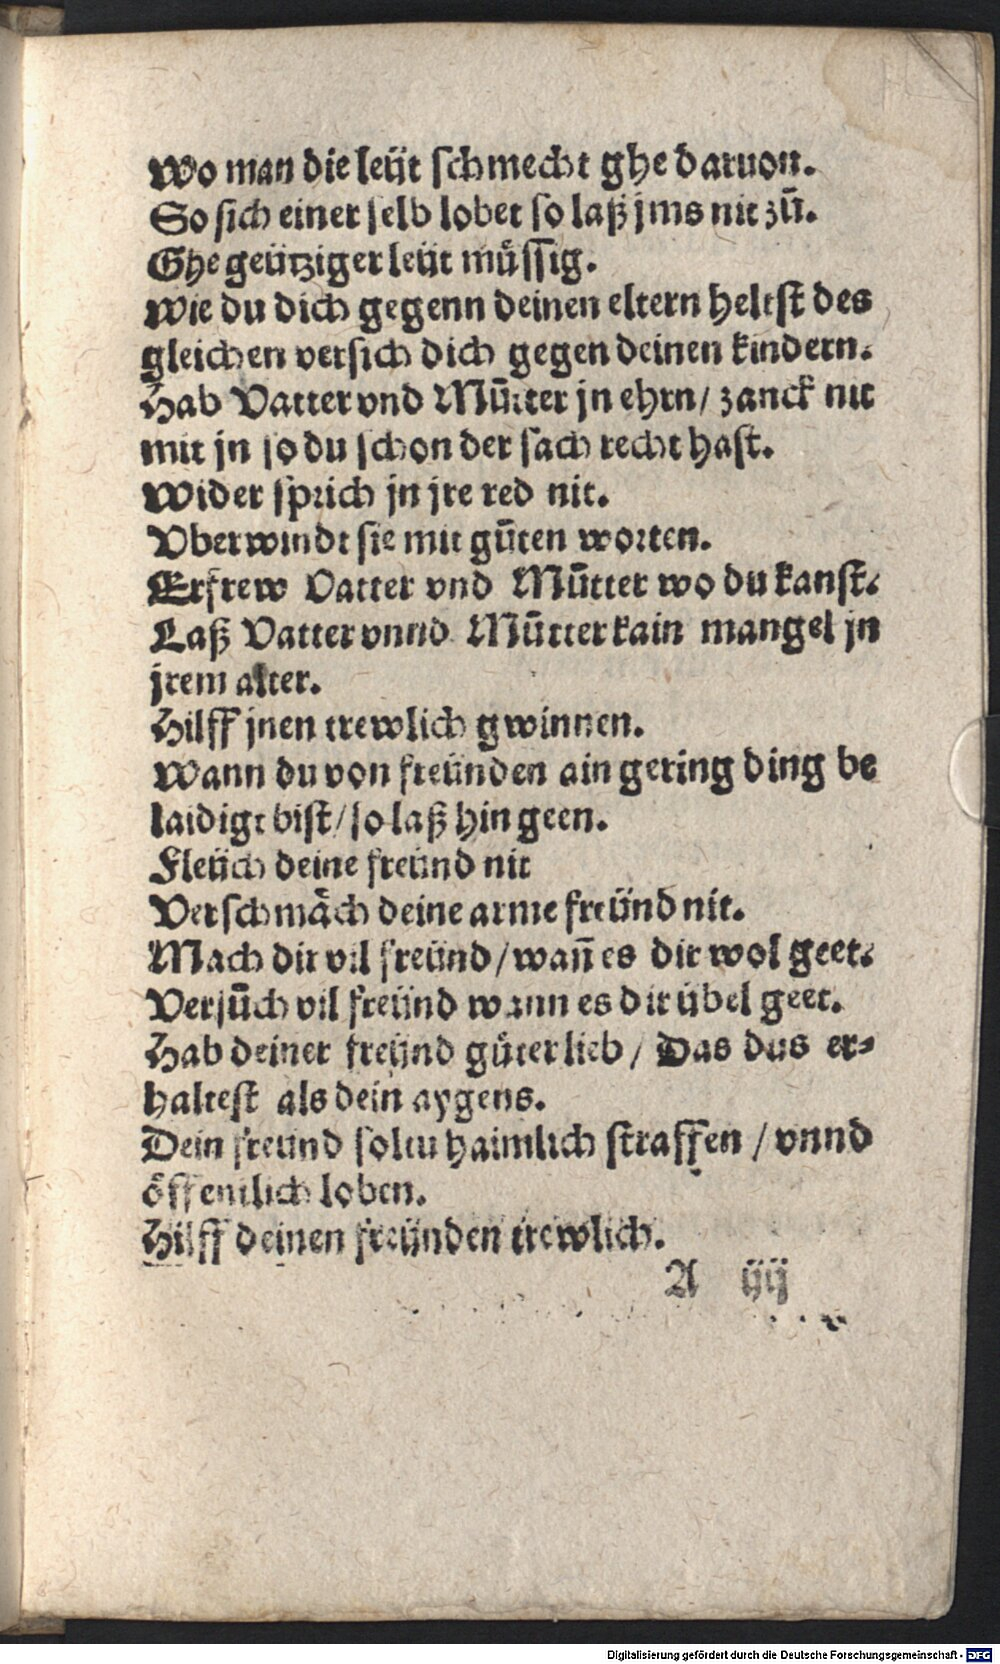 Wo man die leüt schmecht ghe daruon.
So sich einer selb lobet so laß jms nit zů.
Ghe geütziger leüt müssig.
Wie du dich gegenn deinen eltern heltst des
gleichen versich dich gegen deinen kindern.
Hab Vatter vnd Můtter jn ehrn/ zanck nit
mit jn so du schon der sach recht hast.
Wider sprich jn jre red nit.
Vberwindt sie mit gůten worten.
Erfrew Vatter vnd Můtter wo du kanst.
Laß Vatter vnnd Můtter kain mangel jn
jrem alter.
Hilff jnen trewlich gwinnen.
Wann du von freünden ain gering ding be
laidigt bist/ so laß hin geen.
Fleüch deine freünd nit
Verschmäch deine arme freünd nit.
Mach dir vil freünd/ wañ es dir wol geet.
Versůch vil freünd wann es dir übel geet.
Hab deiner freünd güter lieb/ Das dus er⸗
haltest als dein aygens.
Dein freünd soltu haimlich straffen / vnnd
öffentlich loben.
Hilff deinen freünden trewlich.
A iij
Digitalisierung gefördert durch die Deutsche Forschungsgemeinschaft - DFG